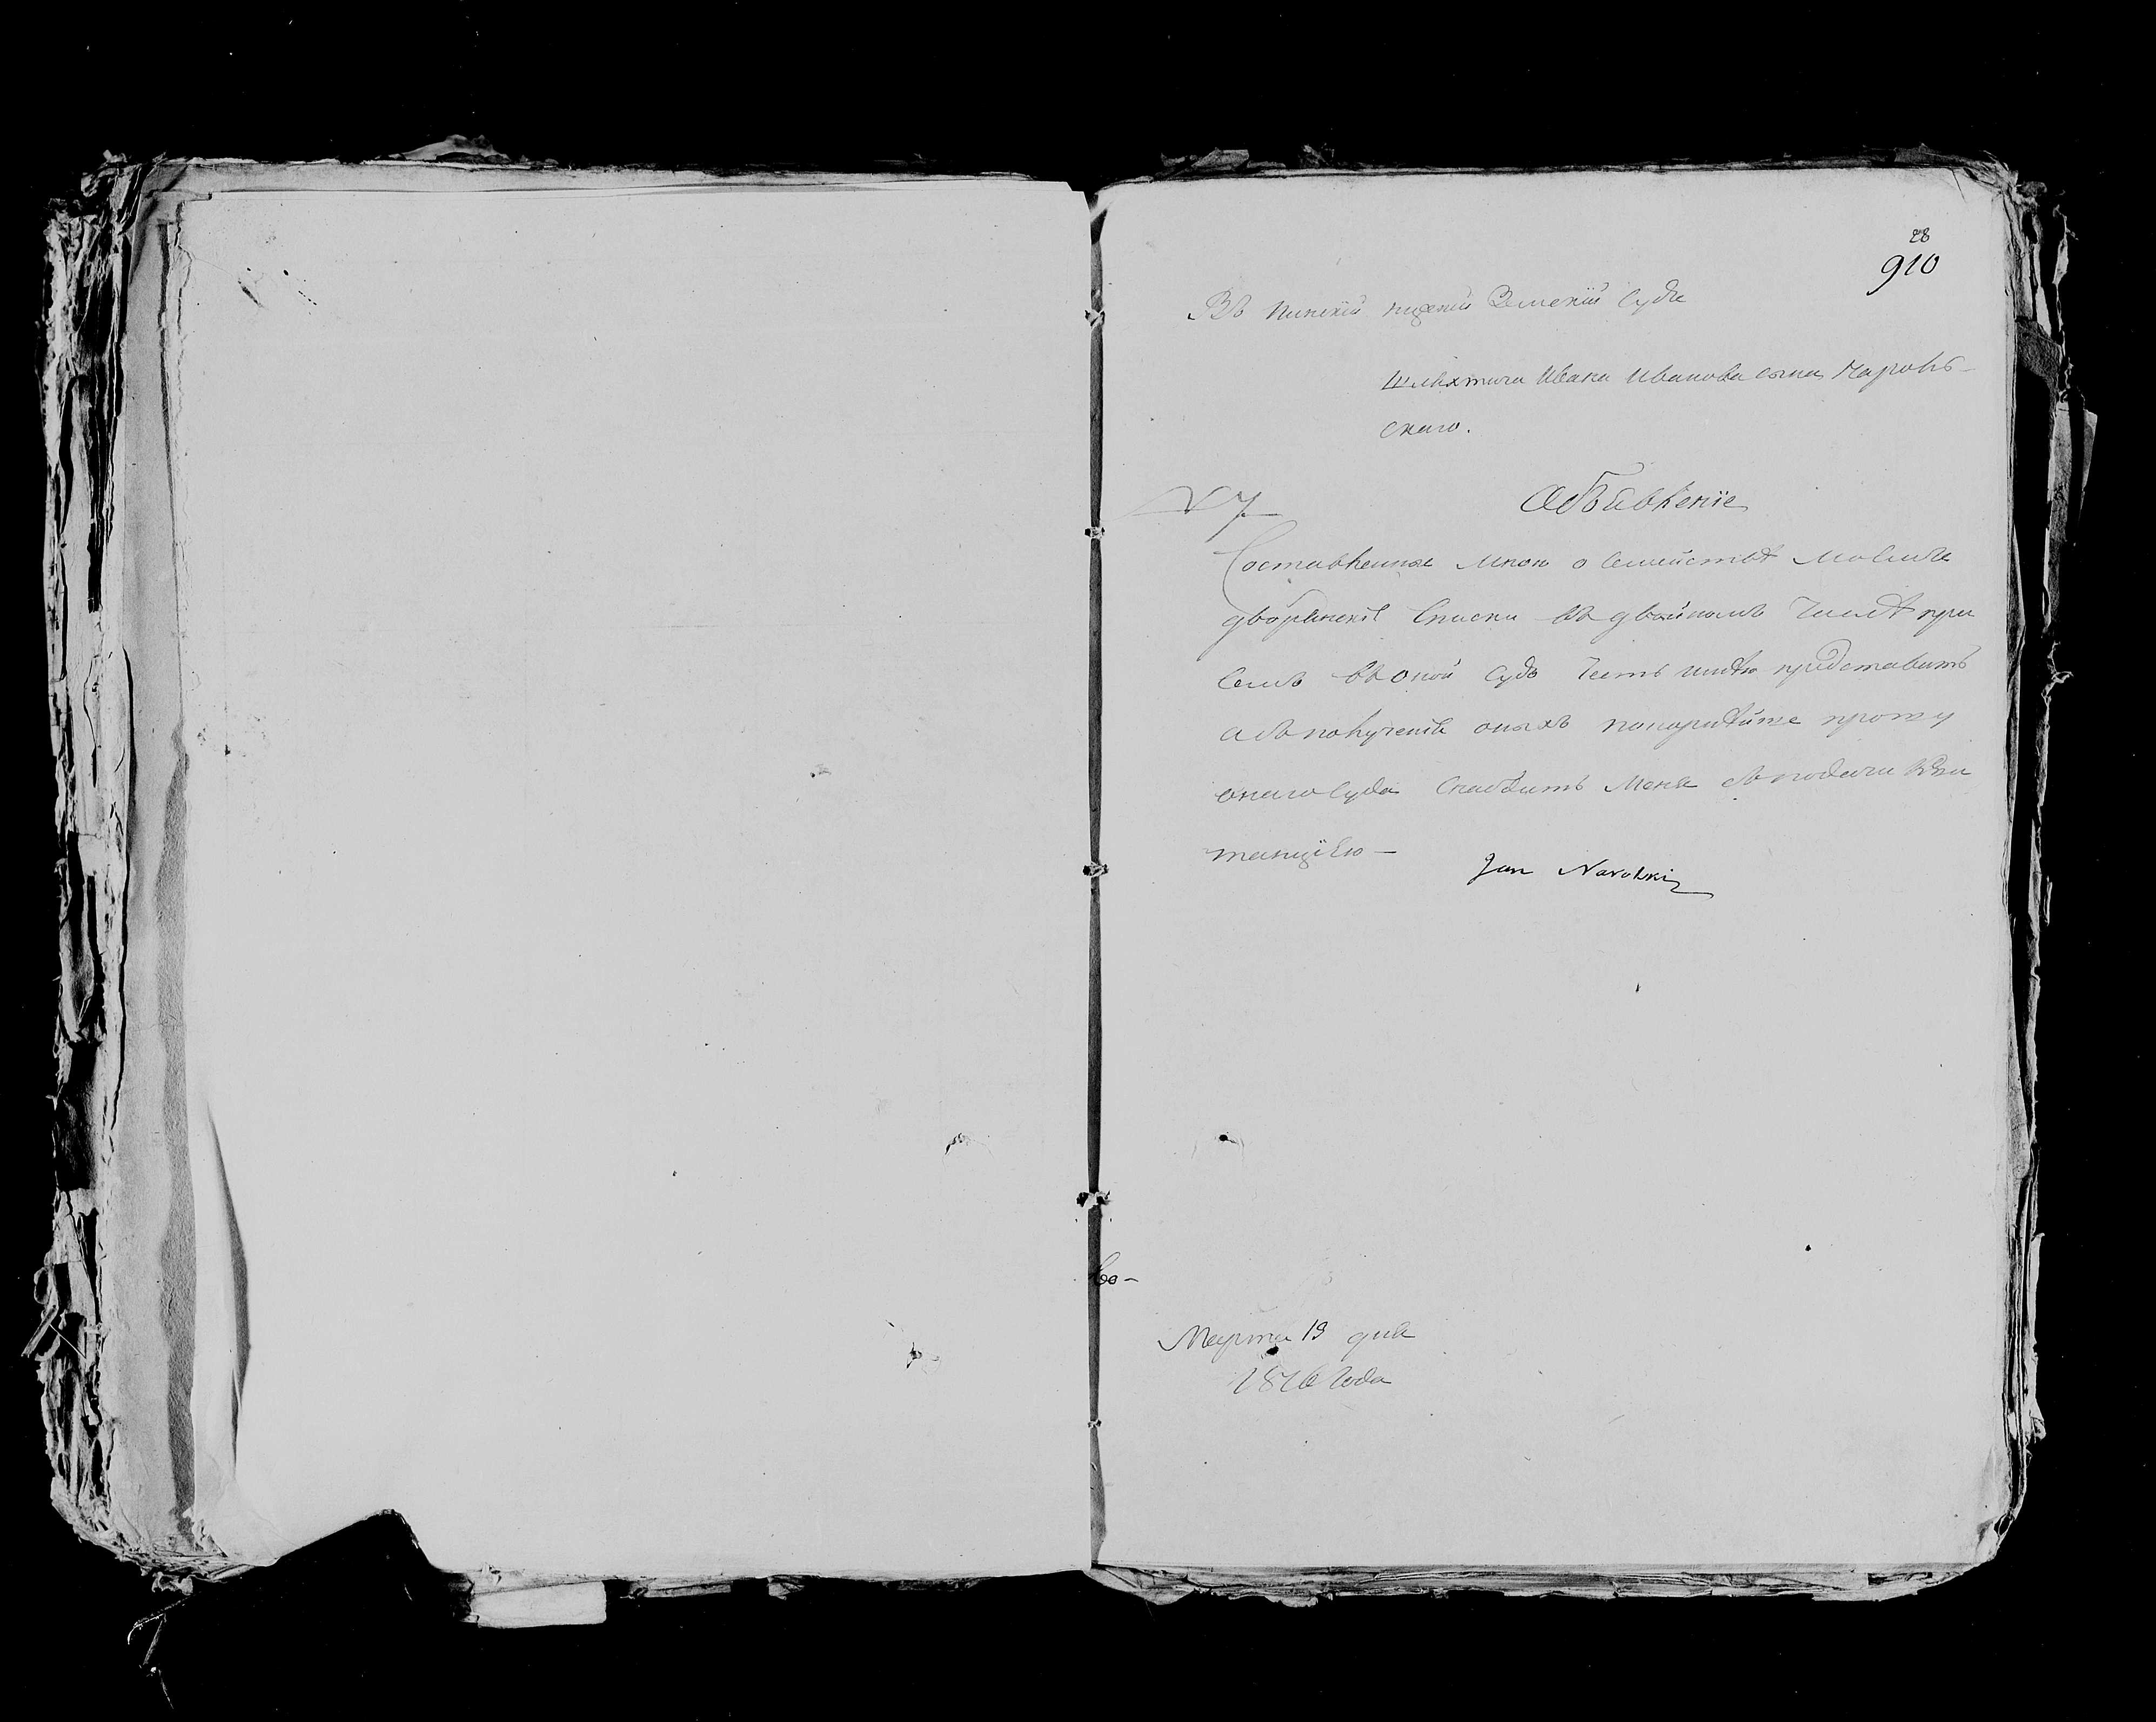 28
910
Въ Пинскій нижній Земскій Судъ
Шляхтича Ивана Иванова сына Наролъ-
скаго.
N 7
Объявленіе
Составленные мною о Семействѣ моемъ
дворянскіе Списки въ двойномъ Числѣ при
Семъ въ оной Судъ Честь имѣю представить
а въ полученіе оныхъ покорнѣйше прошу
онаго Суда Снабдить Меня въ подачи Кви
танціею —
Jan Narolski
Марта 19 дня
Года